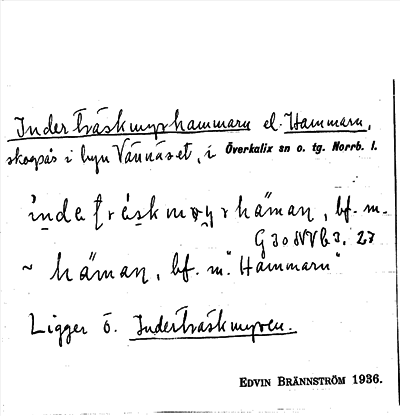 Inderträskmyrhammarn el. Hammarn,
skogsås i byn Vännäset, i Överkalix sn o. tg. Norrb. l.
i̊ndeträskmøyrhäman, bf. m.
G 30 NVb 3. 23
~ häman, bf. m. "Hammarn"
Ligger ö. Inderträskmyren.
EDVIN BRÄNNSTRÖM 1936.